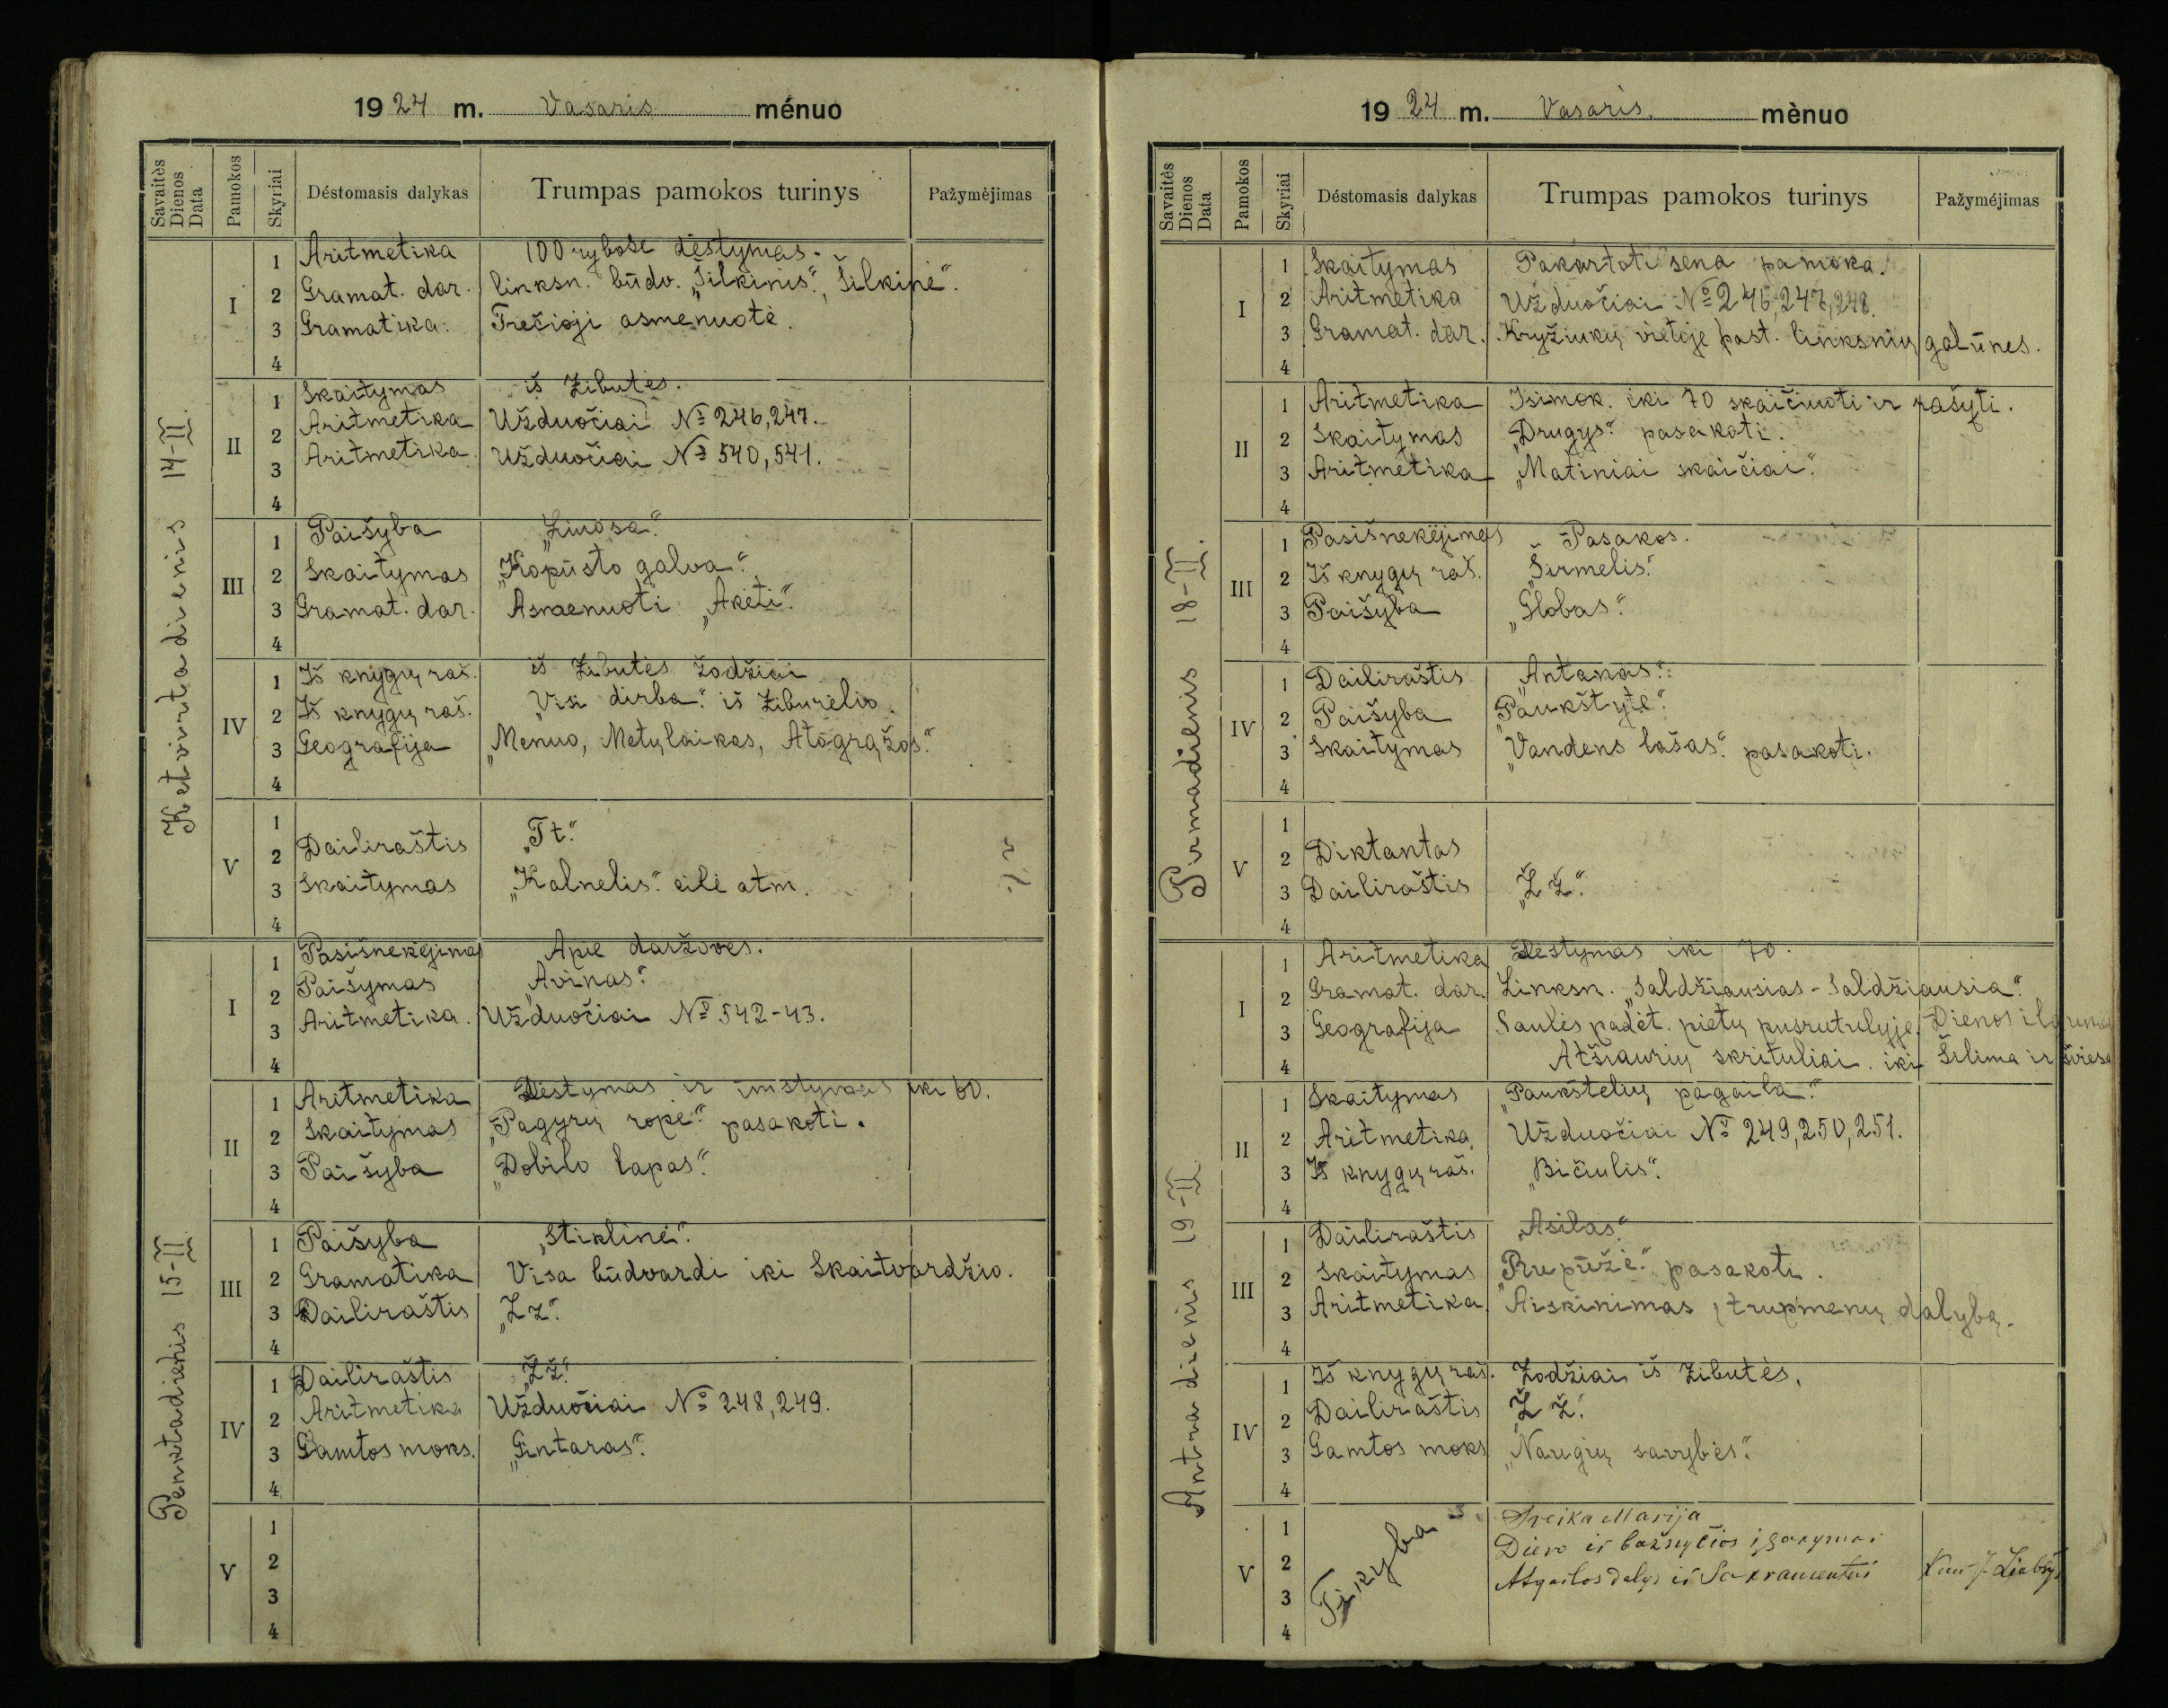 1924 m. Vasaris ménuo
Savaitės Dienos Data Pamokos Skyriai Déstomasis dalykas Trumpas pamokos turinys Pažymėjimas
Ketvirtadienis 14-II.
I
1 Aritmetika 100 rybose dėstymas.
2 Gramat. dar. linksn. būdv. „Šilkinis“, Šilkinė“.
3 Gramatika. Trečioji asmenuotė.
4
II
1 Skaitymas iš Žibutės.
2 Aritmetika Užduočiai № 246, 247.
3 Aritmetika. Užduočiai № 540, 541.
4
III
1 Paišyba
2 Skaitymas „Kopūsto galva“.
3 Gramat. dar. Asmenuoti „Akėti“.
4
IV
1 Iš knygų raš. iš Žibutės žodžiai
2 Iš knygų raš. „Visi dirba“. iš Žiburėlio.
3 Geografija „Menuo, Metų laikas, Atogrąžos.“
4
V
1
2 Dailiraštis „Tt“.
3 Skaitymas „Kalnelis“. eilė atm.
4
Penktadienis 15-II
I
1 Pasišnekėjimas Apie daržoves.
2 Paišymas „Avinas“.
3 Aritmetika. Užduočiai № 542-43.
4
II
1 Aritmetika Dėstymas ir imstymas iki 60.
2 Skaitymas „Pagyrų ropė“. pasakoti.
3 Paišyba „Dobilo lapas“.
4
III
1 Paišyba „Stiklinė“.
2 Gramatika Visa būdvardi iki Skaitvardžio.
3 Dailiraštis „Zz“.
4
IV
1 Dailiraštis „Žž“.
2 Aritmetika Užduočiai № 248, 249.
3 Gamtos moks. „Gintaras“.
4
V
1
2
3
4
1924 m. Vasaris. mènuo
Savaitės Dienos Data Pamokos Skyriai Déstomasis dalykas Trumpas pamokos turinys Pažyméjimas
Pirmadienis 18-II.
I
1 Skaitymas Pakartoti sena pamoka.
2 Aritmetika Užduočiai № 246, 247, 248.
3 Gramat. dar. Kryžiukų vietoje past. linksnių galūnes.
4
II
1 Aritmetika Isimok. iki 70 skaičiuoti ir rašyti.
2 Skaitymas „Drugys“ pasakoti.
3 Aritmetika „Matiniai skaičiai“.
4
III
1 Pasišnekėjimas Pasakos.
2 Iš knygų raš. „Širmelis“.
3 Paišyba „Globas“.
4
IV
1 Dailiraštis „Antanas“.
2 Paišyba „Paukštytė“.
3 Skaitymas „Vandens lašas“. pasakoti.
4
V
1
2 Diktantas
3 Dailiraštis „Ž ž“.
4
Antradienis 19-II.
I
1 Aritmetika Dėstymas iki 70.
2 Gramat. dar. Linksn. „Saldžiausias - Saldžiausia“.
3 Geografija Saulės padėt. pietų pusrutulyje. Dienos ilgumas
4 Atšiaurių skrituliai. iki Šilima ir šviesa
II
1 Skaitymas „Paukštelių pagaila“.
2 Aritmetika Užduočiai № 249, 250, 251.
3 Iš knygų raš. „Bičiulis“.
4
III
1 Dailiraštis „Asilas“.
2 Skaitymas „Rupūžė“. pasakoti.
3 Aritmetika. Aiškinimas trupmenų dalybą.
4
IV
1 Iš knygų raš. Žodžiai iš Žibutės.
2 Dailiraštis „Ž ž“.
3 Gamtos moks „Naugių savybės“.
4
V Tikyba
1 Sveika Marija
2 Dievo ir bažnyčios įsakymai
3 Atgailos dalys ir Sakramentai Kun J.
4